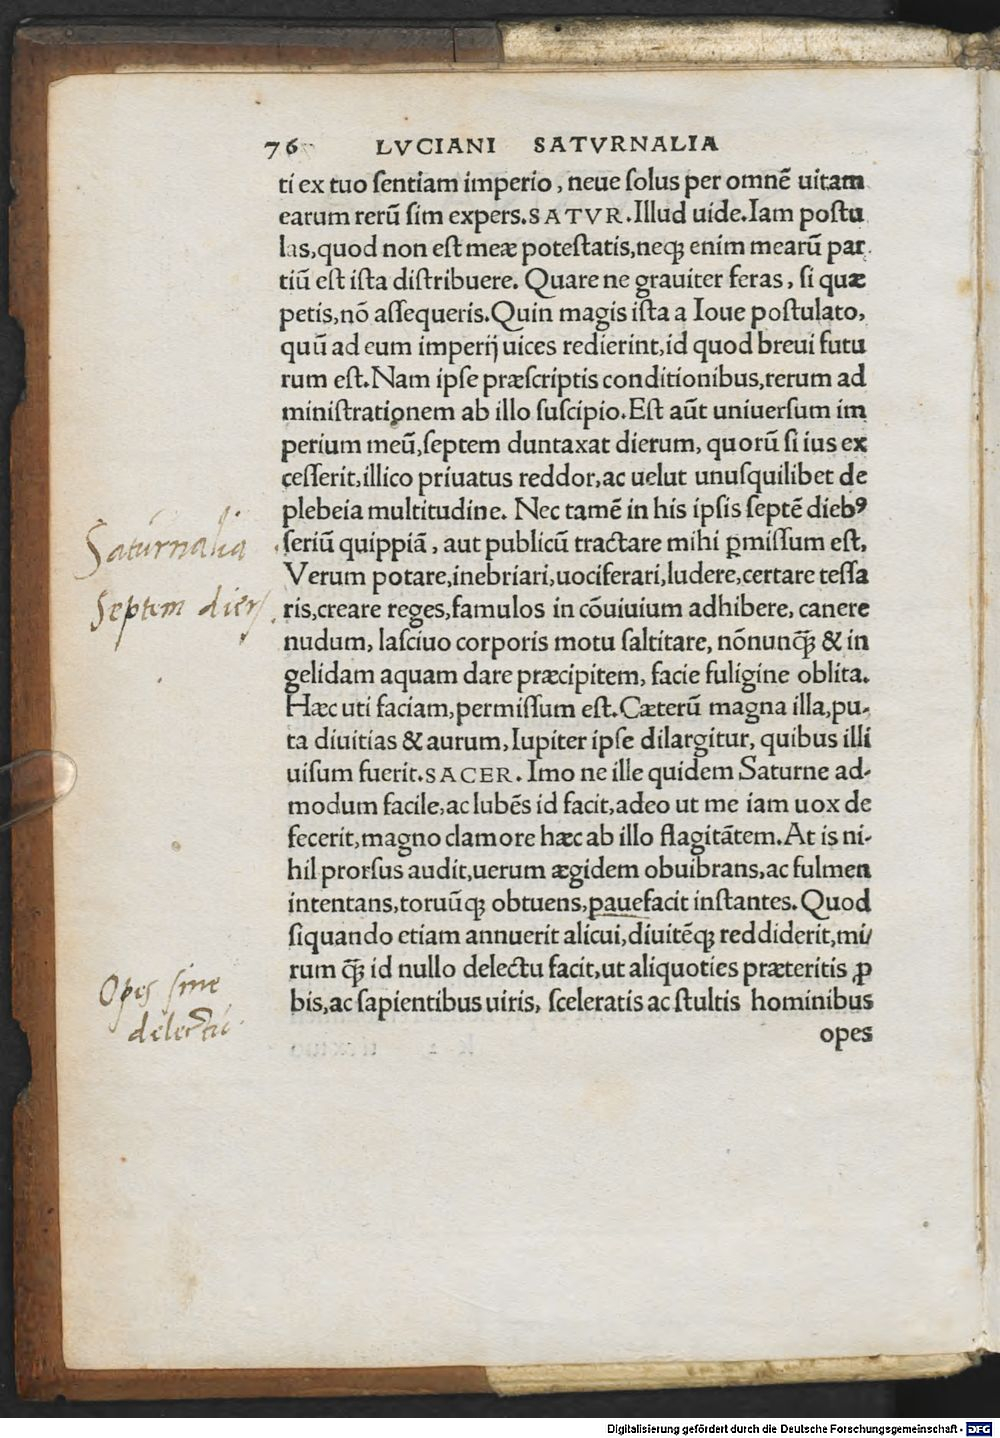 76 LVCIANI SATVRNALIA
ti ex tuo ſentiam imperio, neue ſolus per omnẽ uitam
earum rerũ ſim expers.SATVR.Illud uide.Iam poſtu
las,quod non eſt meæ poteſtatis,neqꝫ enim mearũ par
tiũ eſt iſta diſtribuere. Quare ne grauiter feras, ſi quæ
petis,nõ aſſequeris.Quin magis iſta a Ioue poſtulato,
quũ ad eum imperij uices redierint,id quod breui futu
rum eſt.Nam ipſe præſcriptis conditionibus,rerum ad
miniſtrationem ab illo ſuſcipio.Eſt aũt uniuerſum im
perium meũ,ſeptem duntaxat dierum, quorũ ſi ius ex
ceſſerit,illico priuatus reddor,ac uelut unuſquilibet de
plebeia multitudine. Nec tamẽ in his ipſis ſeptẽ diebꝰ
Saturnalia
ſeriũ quippiã, aut publicũ tractare mihi ꝑmiſſum eſt,
Verum potare,inebriari,uociferari,ludere,certare teſſa
Septem dieꝝ
ris,creare reges,famulos in cõuiuium adhibere, canere
nudum, laſciuo corporis motu ſaltitare, nõnunq̃ꝫ & in
gelidam aquam dare præcipitem, facie fuligine oblita.
Hæc uti faciam,permiſſum eſt.Cæterũ magna illa,pu-
ta diuitias & aurum,Iupiter ipſe dilargitur, quibus illi
uiſum fuerit.SACER. Imo ne ille quidem Saturne ad-
modum facile,ac lubẽs id facit,adeo ut me iam uox de
fecerit,magno clamore hæc ab illo flagitãtem.At is ni-
hil prorſus audit,uerum ægidem obuibrans,ac fulmen
intentans,toruũqꝫ obtuens,pauefacit inſtantes.Quod
ſiquando etiam annuerit alicui,diuitẽqꝫ reddiderit,mi/
Opes ſine
rum q̃ꝫ id nullo delectu facit,ut aliquoties præteritis ꝓ
delectu
bis,ac ſapientibus uiris, ſceleratis ac ſtultis hominibus
opes
Digitalisierung gefördert durch die Deutsche Forschungsgemeinschaft - DFG